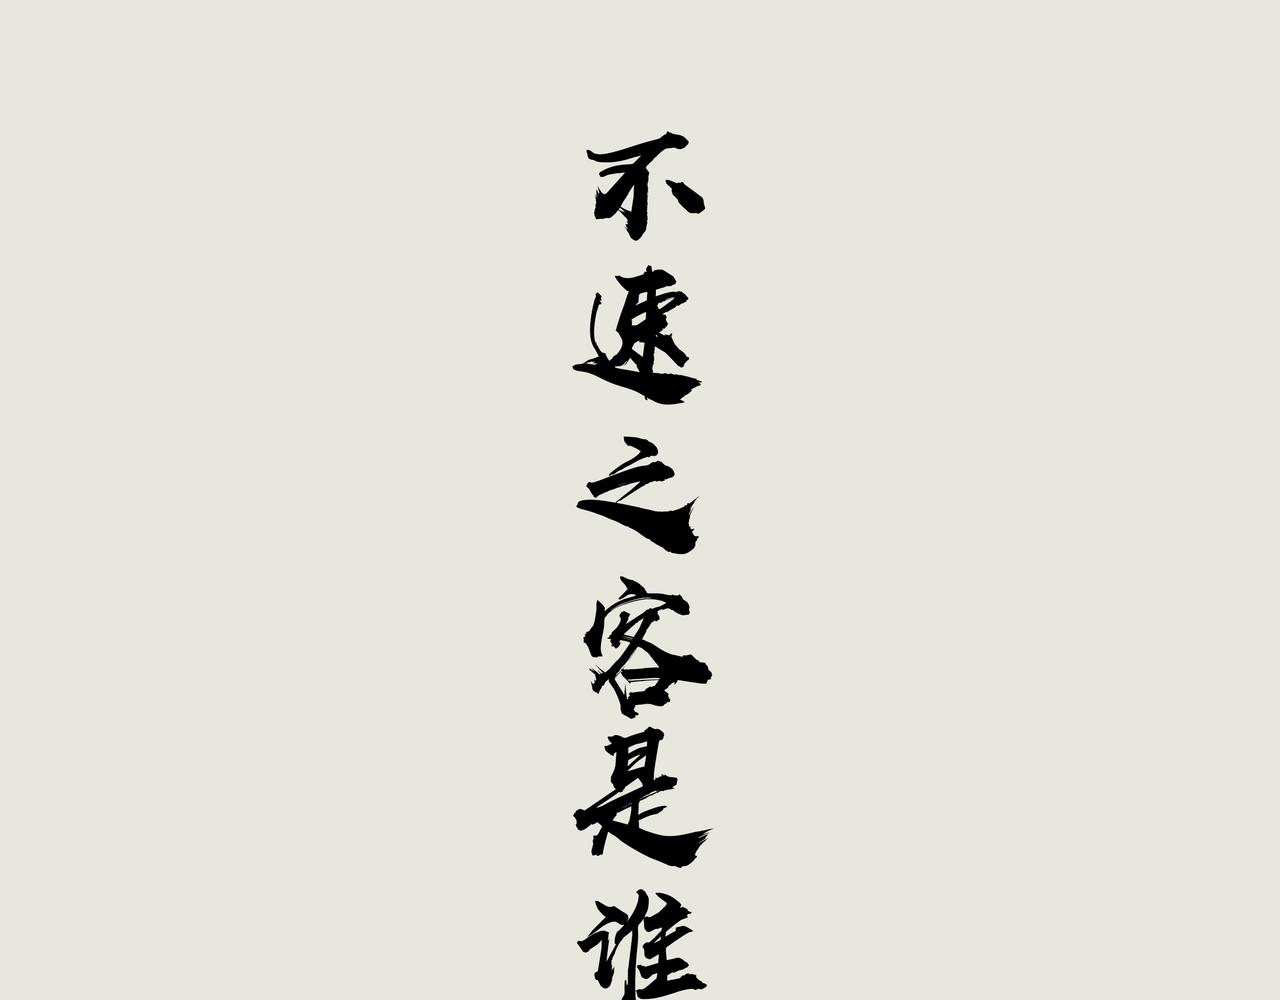 不速之客是谁